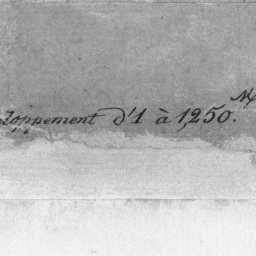 loppement d'1 à 1,250.